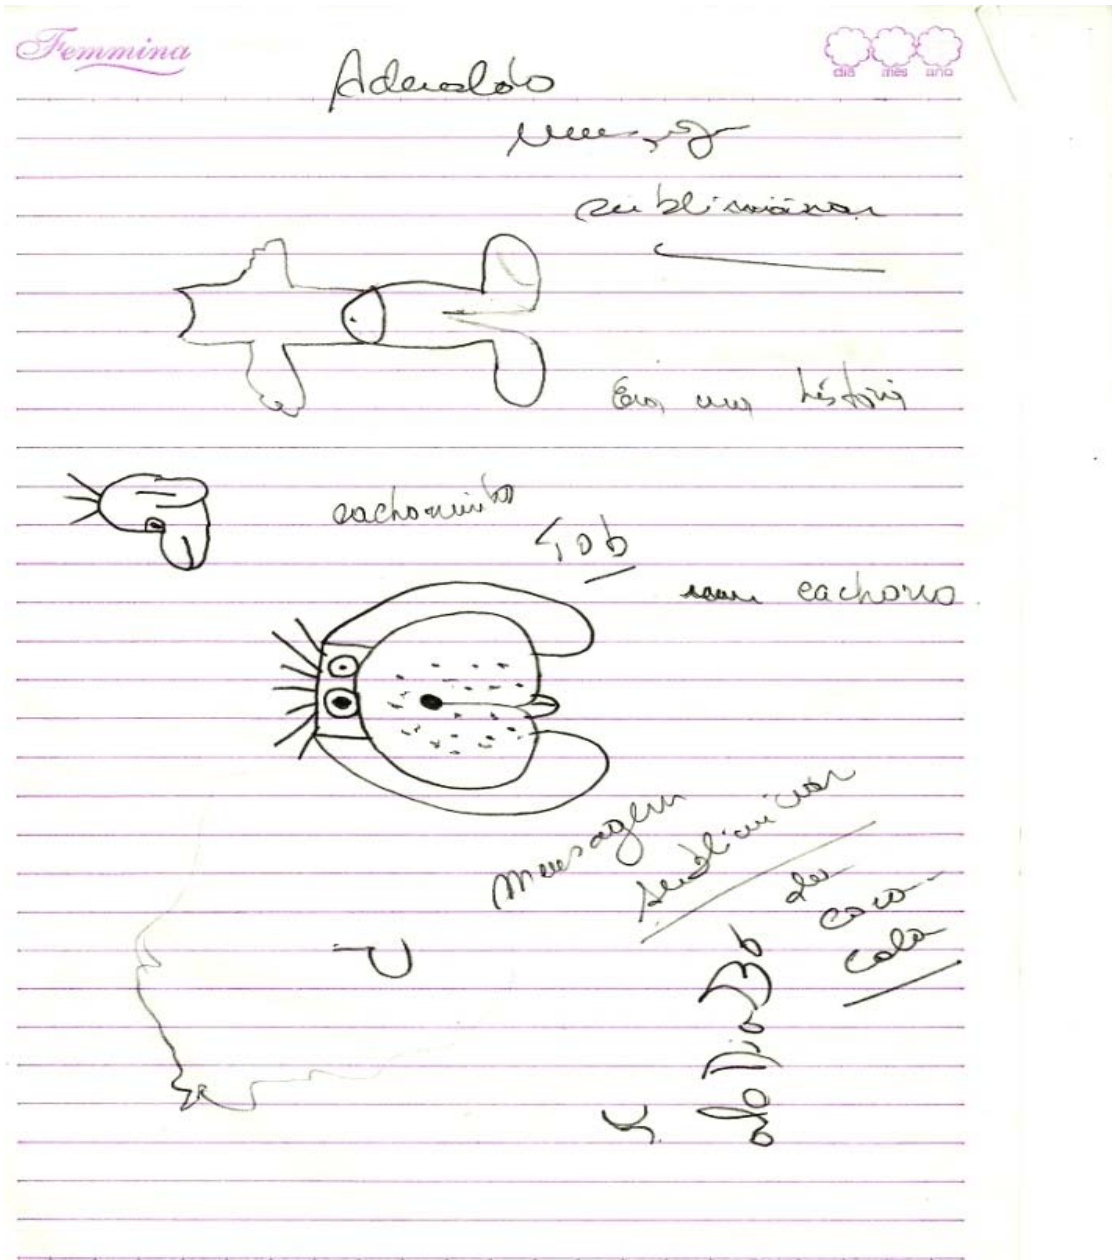 Femmina
dia mês ano
Aderaldo
subliminar
Era uma história
cachorrinho
um cachorro
mensagem
subliminar
da
coca-
cola